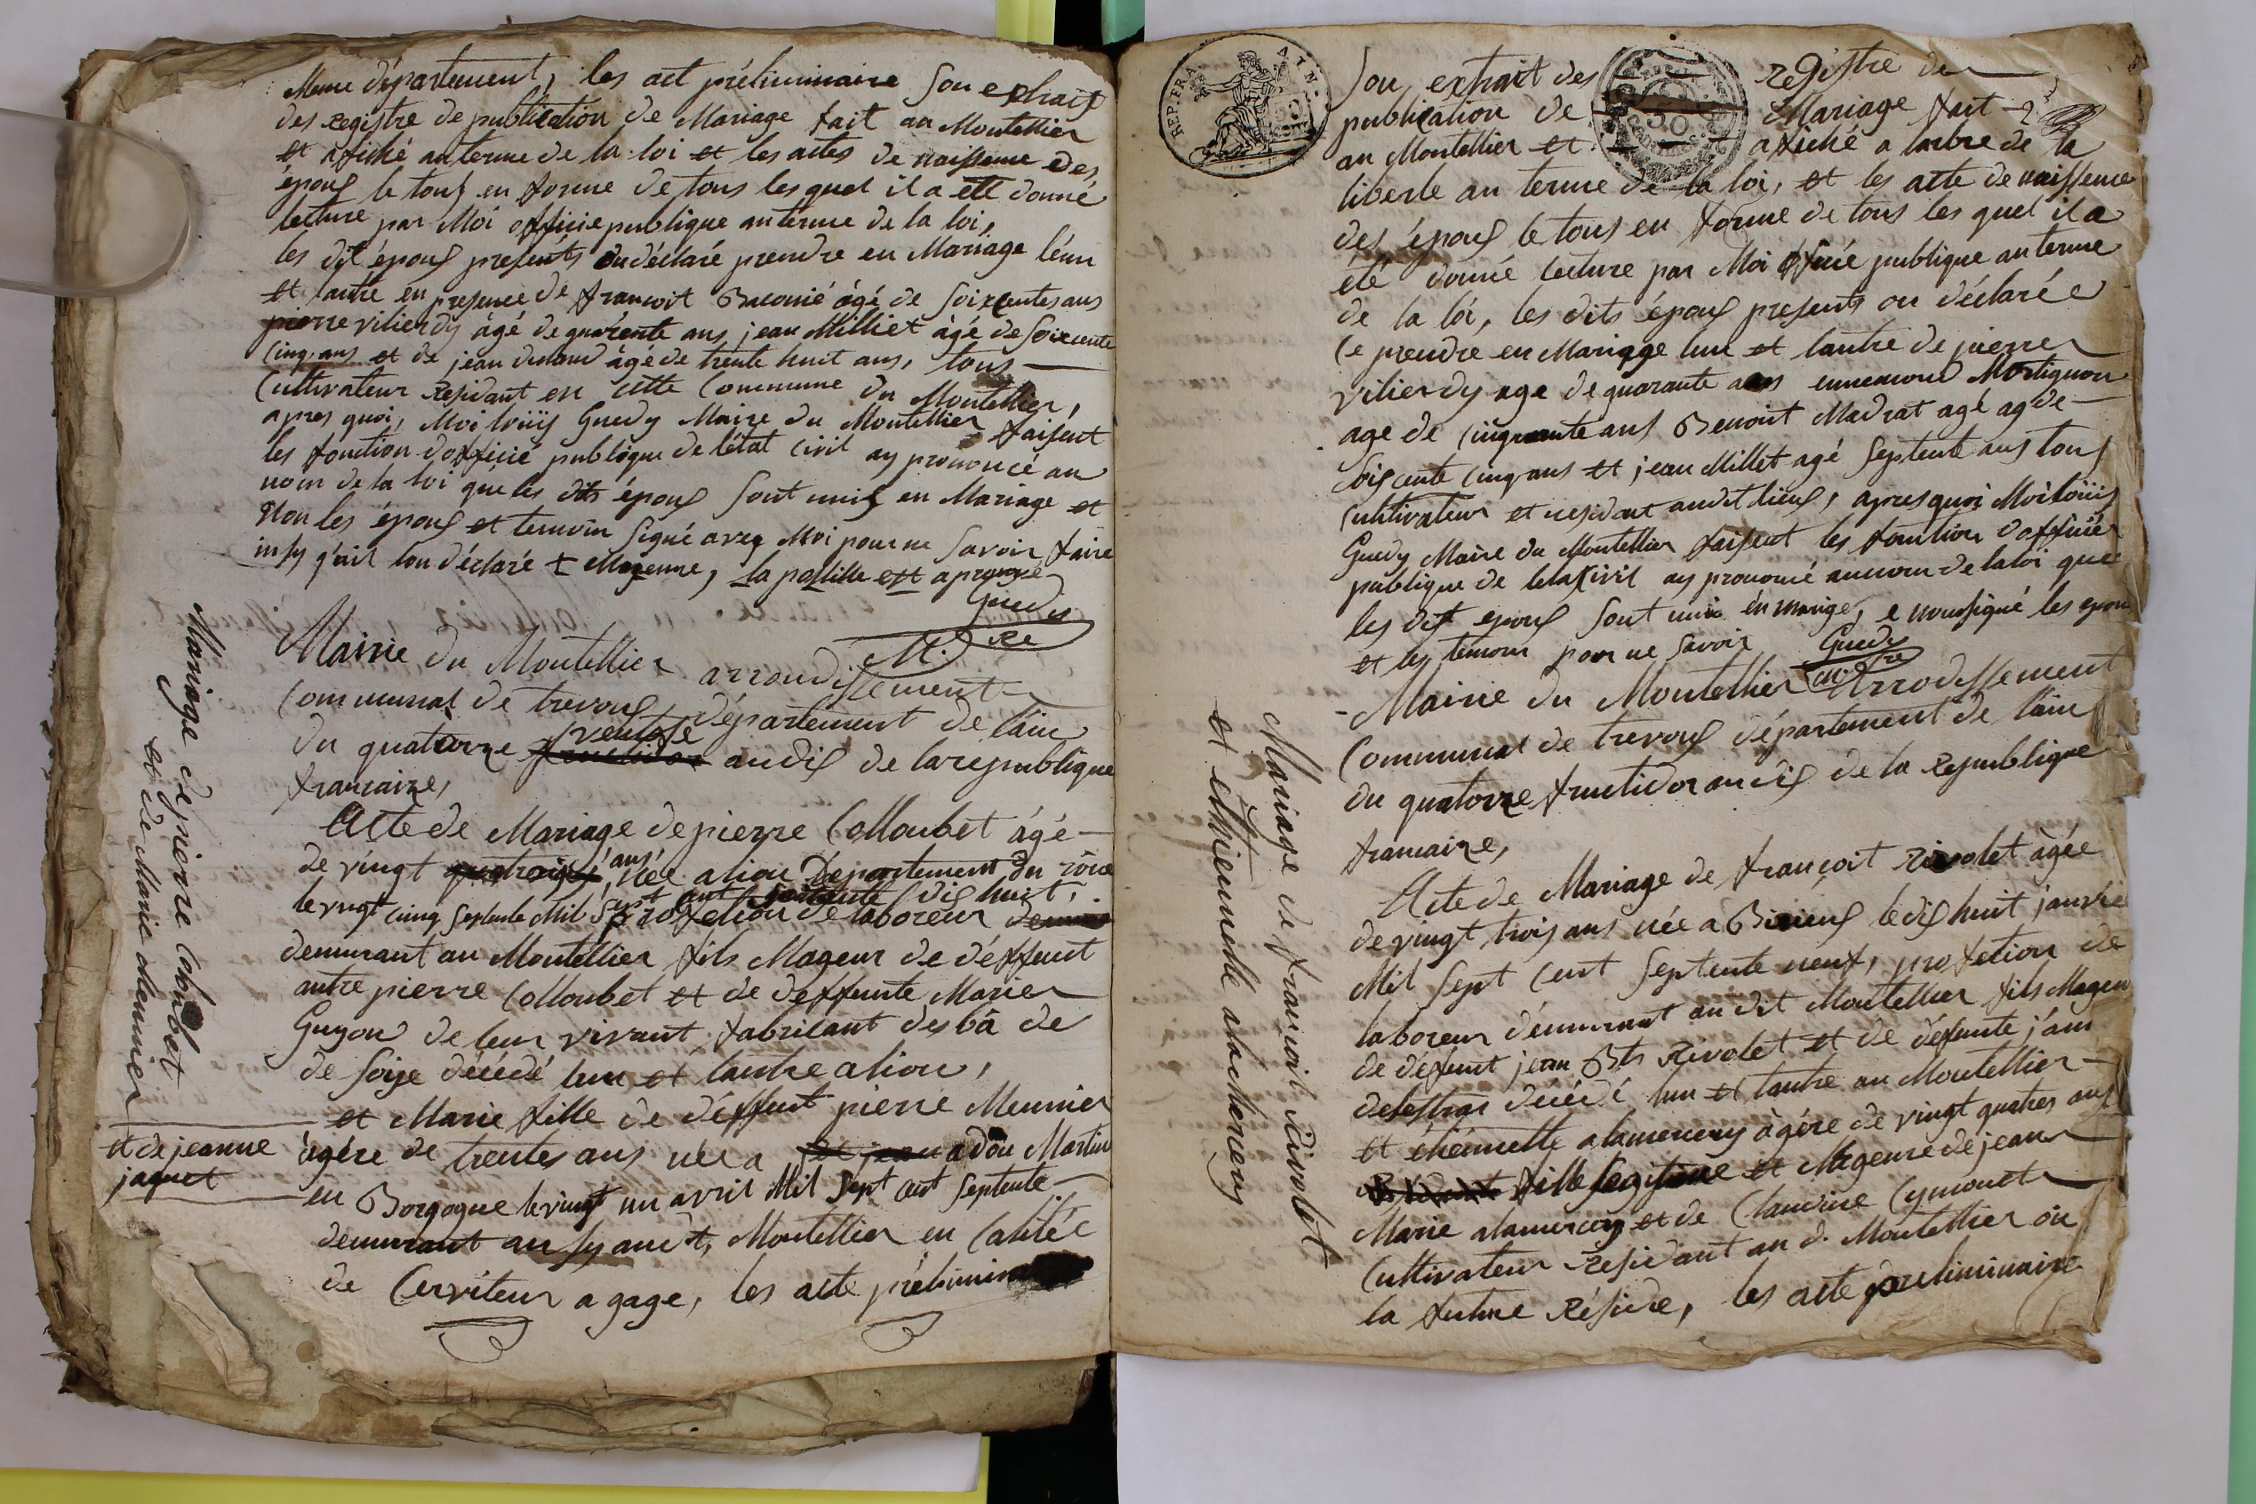 Meme département, les act préliminaire son extrait
des registre de publication de Mariage fait au Montellier
et afiché au terme de la loi et les actes de naissence des
épous le tous en forme de tous les quel il a etté donné
lecture par Moi officié publique au terme de la loi,
les dit épous presénts on déclaré prendre en Mariage léun
et lautre en presence de françoit Baconié àgé de soixentes ans
pierre viliendy àgé de quarente ans, jean Milliet àgé de soixcente
Cinq, ans et de jean àgé de trente huit ans, tous
Cultivateur résidant en cette Commune du Montellier,
apres quoi, Moi loüis Guedy Maire du Montellier faisent
les fonction d'officié publique de létat civil ay prononcé au
nom de la loi que les dits épous sont unis en Mariage et
non les épous et temoin signé aveq Moi pour ne savoir faire
insy quil lon déclaré + Mageure, la postille est aprouvé
Guedy
M.re
Mairie du Montellier arrondissement
Communal de trevous, département de lain
du quatorze fructidor ventose an dis de la republique
francaize,
Acte de Mariage de pierre Colloubet àgé
de vingt quatre ans, née a lion Département du rône
le vingt cinq septenbe Mil sept cent septente dis huit,
profetion de laboreur
demurant au Montellier fils Mageur de déffunt
autre pierre Colloubet et de deffunte Marie
Guyon de leur vivant fabricant des bâ de
de soye décédé lun et lautre a lion,
et Marie fille de déffunt pierre Meunier
et de jeanne
jaquet
àgére de trentes ans née a a dou Martin
en Borgogne le vingt un avril Mil sept cent septente
demurant ausy audt, Montellier en Calitée
de Cerviteur a gage, les acte préliminaire
Mariage de pierre Coloubet
et de Marie Meunier
REP. FRA
son extrait des registre de
publication de Mariage fait
au Montellier et afiché a larbre de la
liberte au terme de la loi, et les acte de naissence
des épous le tous en forme de tous les quel il a
été donné lecture par Moi officié publique au terme
de la loi, les dits épous presents on déclarée
ce prendre en Mariage lun et lautre de pierre
viliendy age de quarante ans ennemond Mortignon
age de cinquante ans Benoit Madrat agé ag de
soiscente cinq ans et jean Millet agé septente ans tous
Cultivateur et residant audit lieus, apres quoi Moi loüis
Guedy Maire du Montellier faisent les fonction d'officiér
publique de letat civil ay prononcé au nom de la loi que
les dit epous sont unis en mariage, e nonsigné les epou
et les temoin pour ne savoir
Guedy
M.re
Mairie du Montellier Arrodissement
Communal de trevous département de lain
du quatorze fructidor an dis de la republique
francaize,
Acte de Mariage de françoit Rivolet àgée
de vingt trois ans née a Birieus le dis huit janvié
Mil sept cent septente neuf, profetion de
laboreur démurant au dit Montellier fils Mageur
de défunt jean Bte Rivolet et de défunte jeane
delestras décédé lun et lautre au Montellier
et étiennette alamercery àgére de vingt quatres ans
fille legitime et Mageure de jean
Marie alamercery et de Claudine Cymonet
Cultivateur residant au d. Montellier où
la future réside, les acte preliminaire
Mariage de francoit Rivolet
et ethiennette alamercery